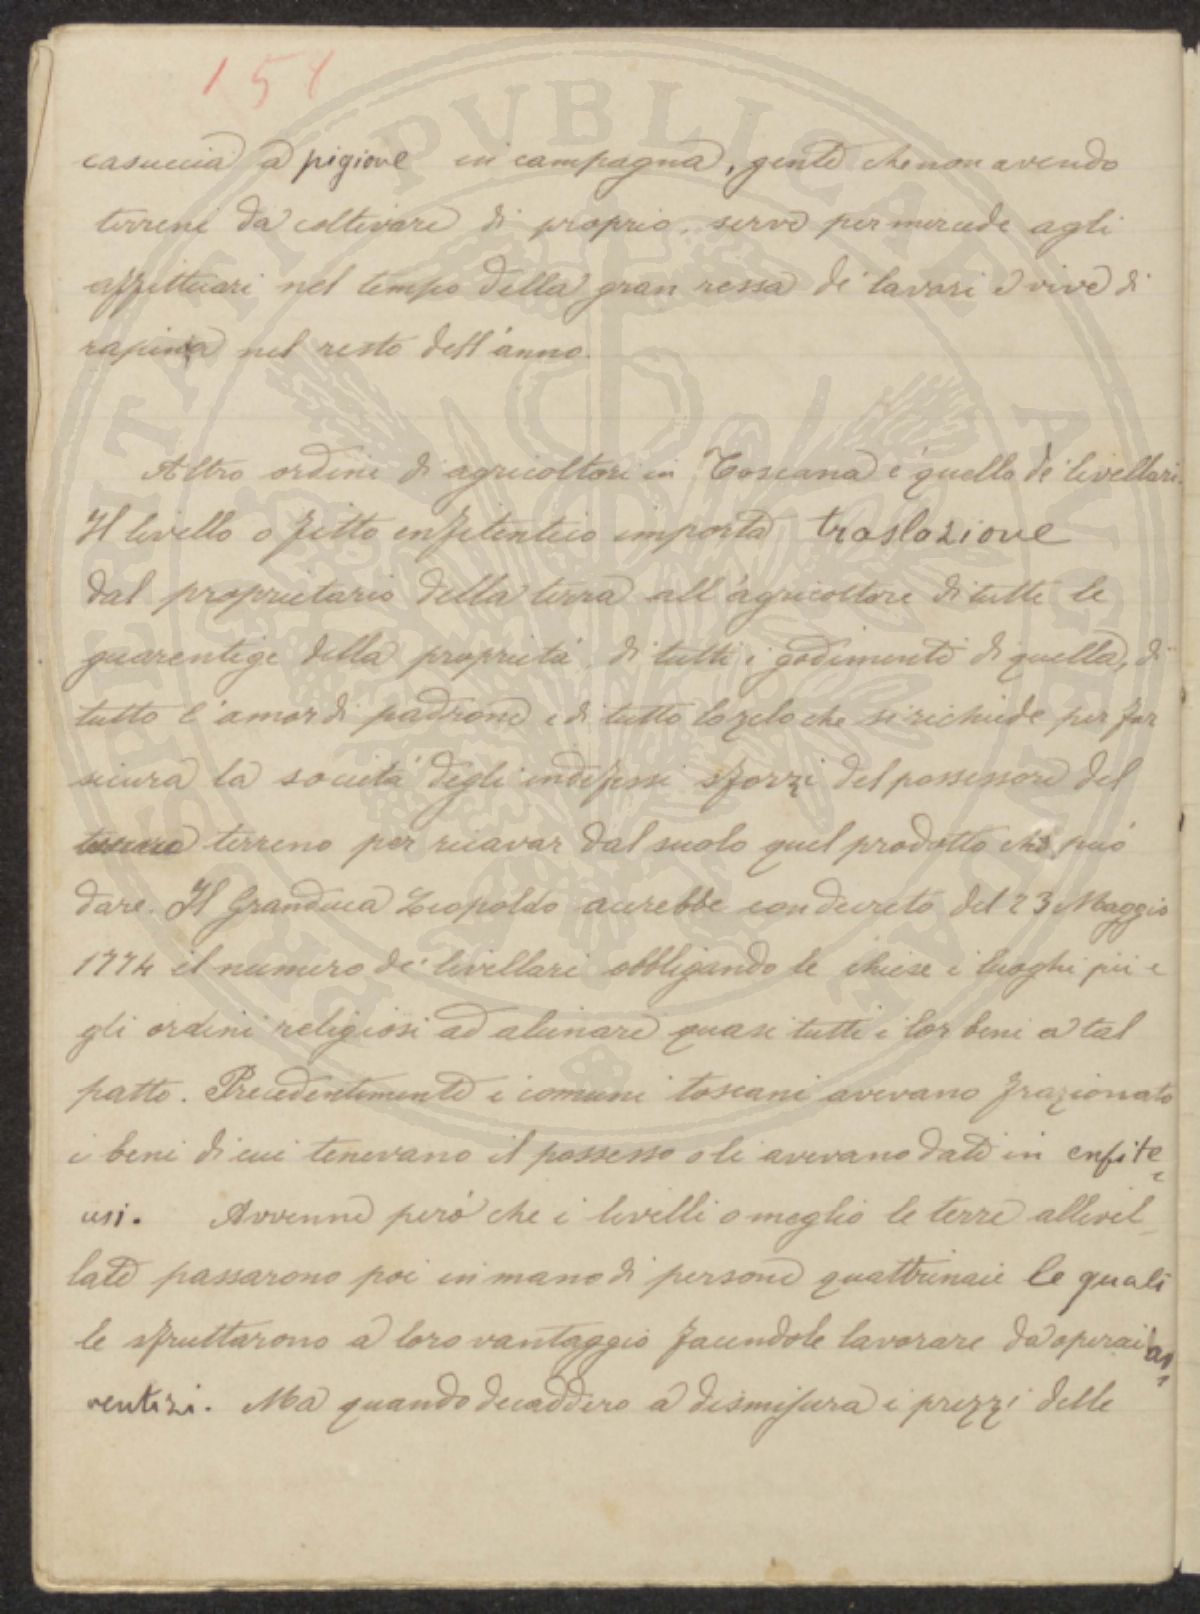 154
casuccia a pigione in campagna, gente che non avendo
terreni da coltivare di proprio, serve per mercede agli
affittuari nel tempo della gran ressa de' lavori e vive di
rapina nel resto dell'anno.
Altro ordine di agricoltori in Toscana è quello de' livellari.
Il livello o fitto enfitentico importa traslazione
dal proprietario della terra all'agricoltore di tutte le
guarentige della proprietà, di tutti i godimenti di quella, di
tutto l'amor di padrone e di tutto lo zelo che si richiede per far
sicura la società degli indefessi sforzi del possessore del
terreno per ricavar dal suolo quel prodotto che può
dare. Il Granduca Leopoldo accrebbe con decreto del 23 Maggio
1774 il numero de' livellari obbligando le chiese i luoghi pii e
gli ordini religiosi ad alienare quasi tutti i lor beni a tal
patto. Precedentemente i comuni toscani avevano frazionato
i beni di cui tenevano il possesso o li avevano dati in enfite=
usi. Avvenne però che i livelli o meglio le terre allivel-
late passarono poi in mano di persone quattrinaie le quali
le sfruttarono a loro vantaggio facendole lavorare da operai av=
ventizi. Ma quando decaddero a dismisura i prezzi delle
PUBLICAE